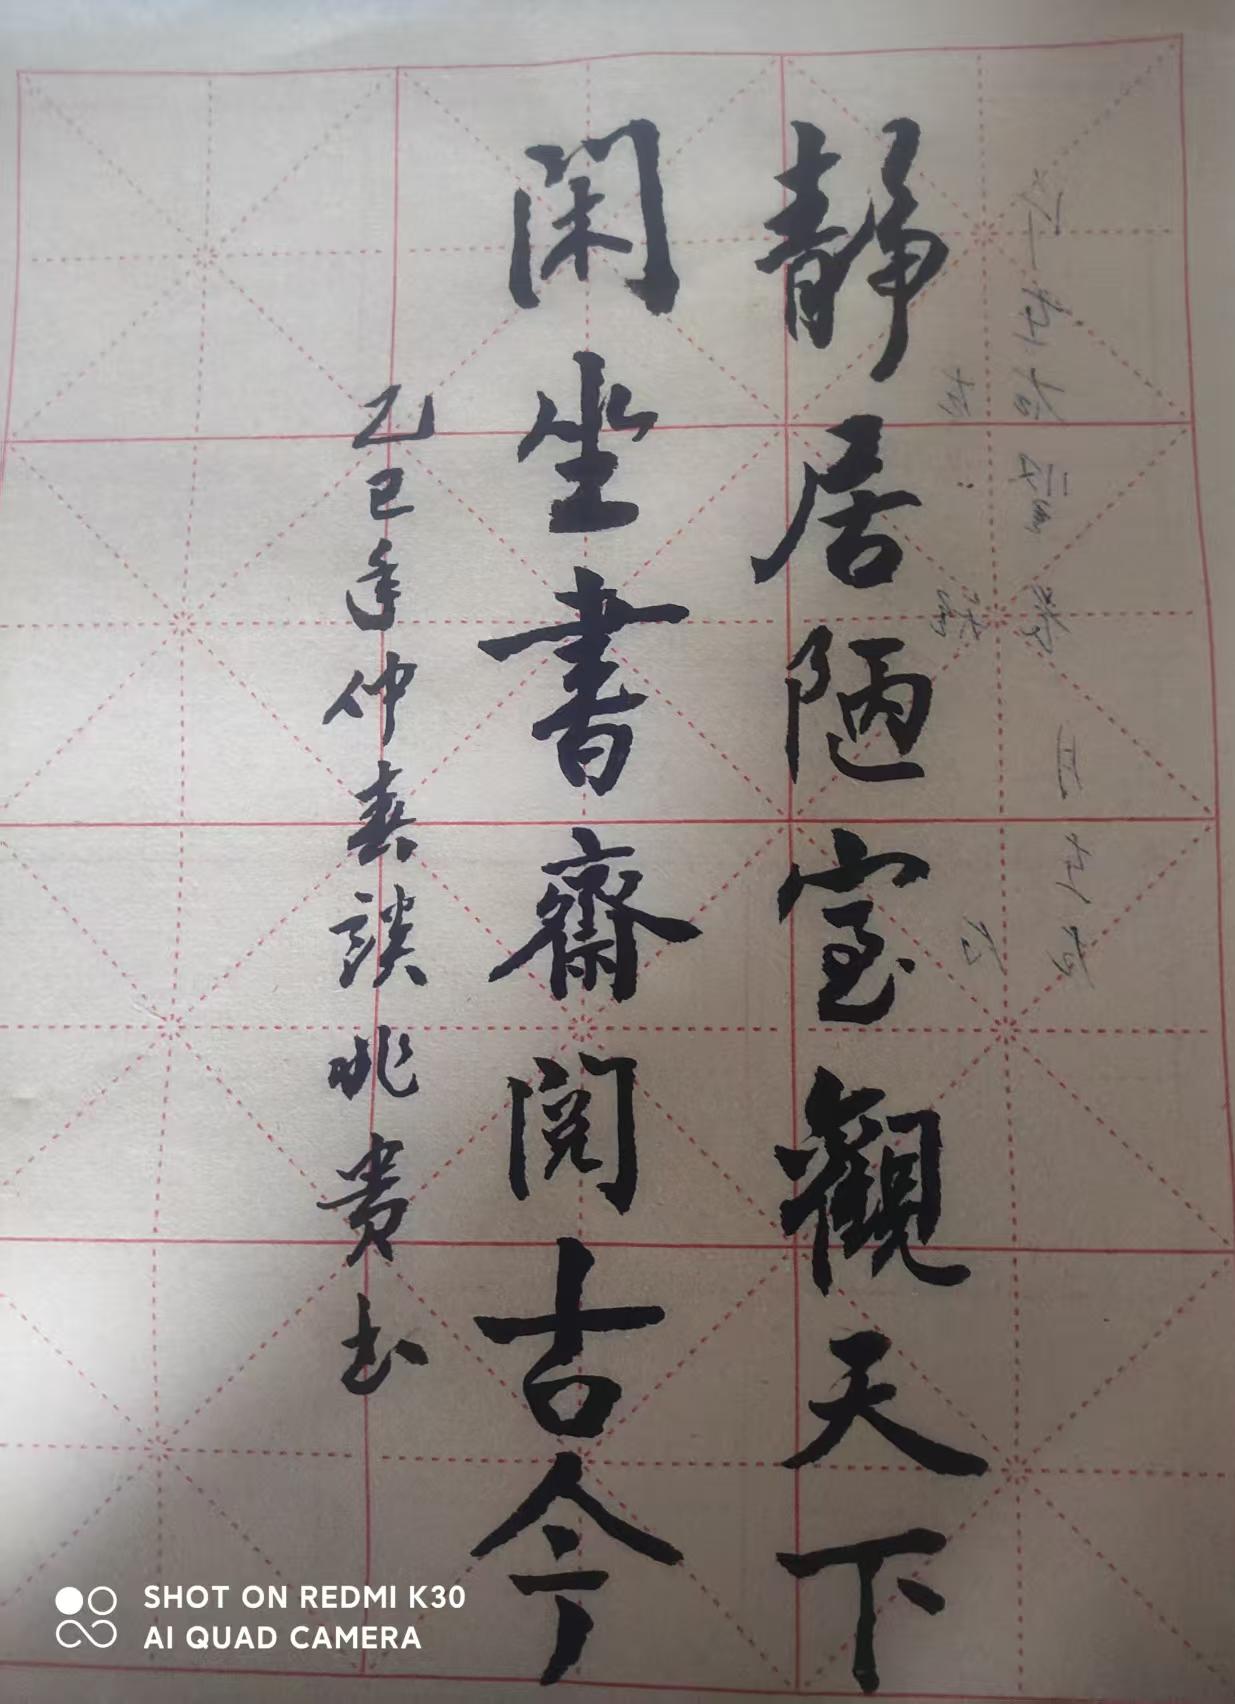 靜居陋室觀天下
閑坐書齋閱古今
乙巳年仲春談兆贵书
SHOT ON REDMI K30
AI QUAD CAMERA